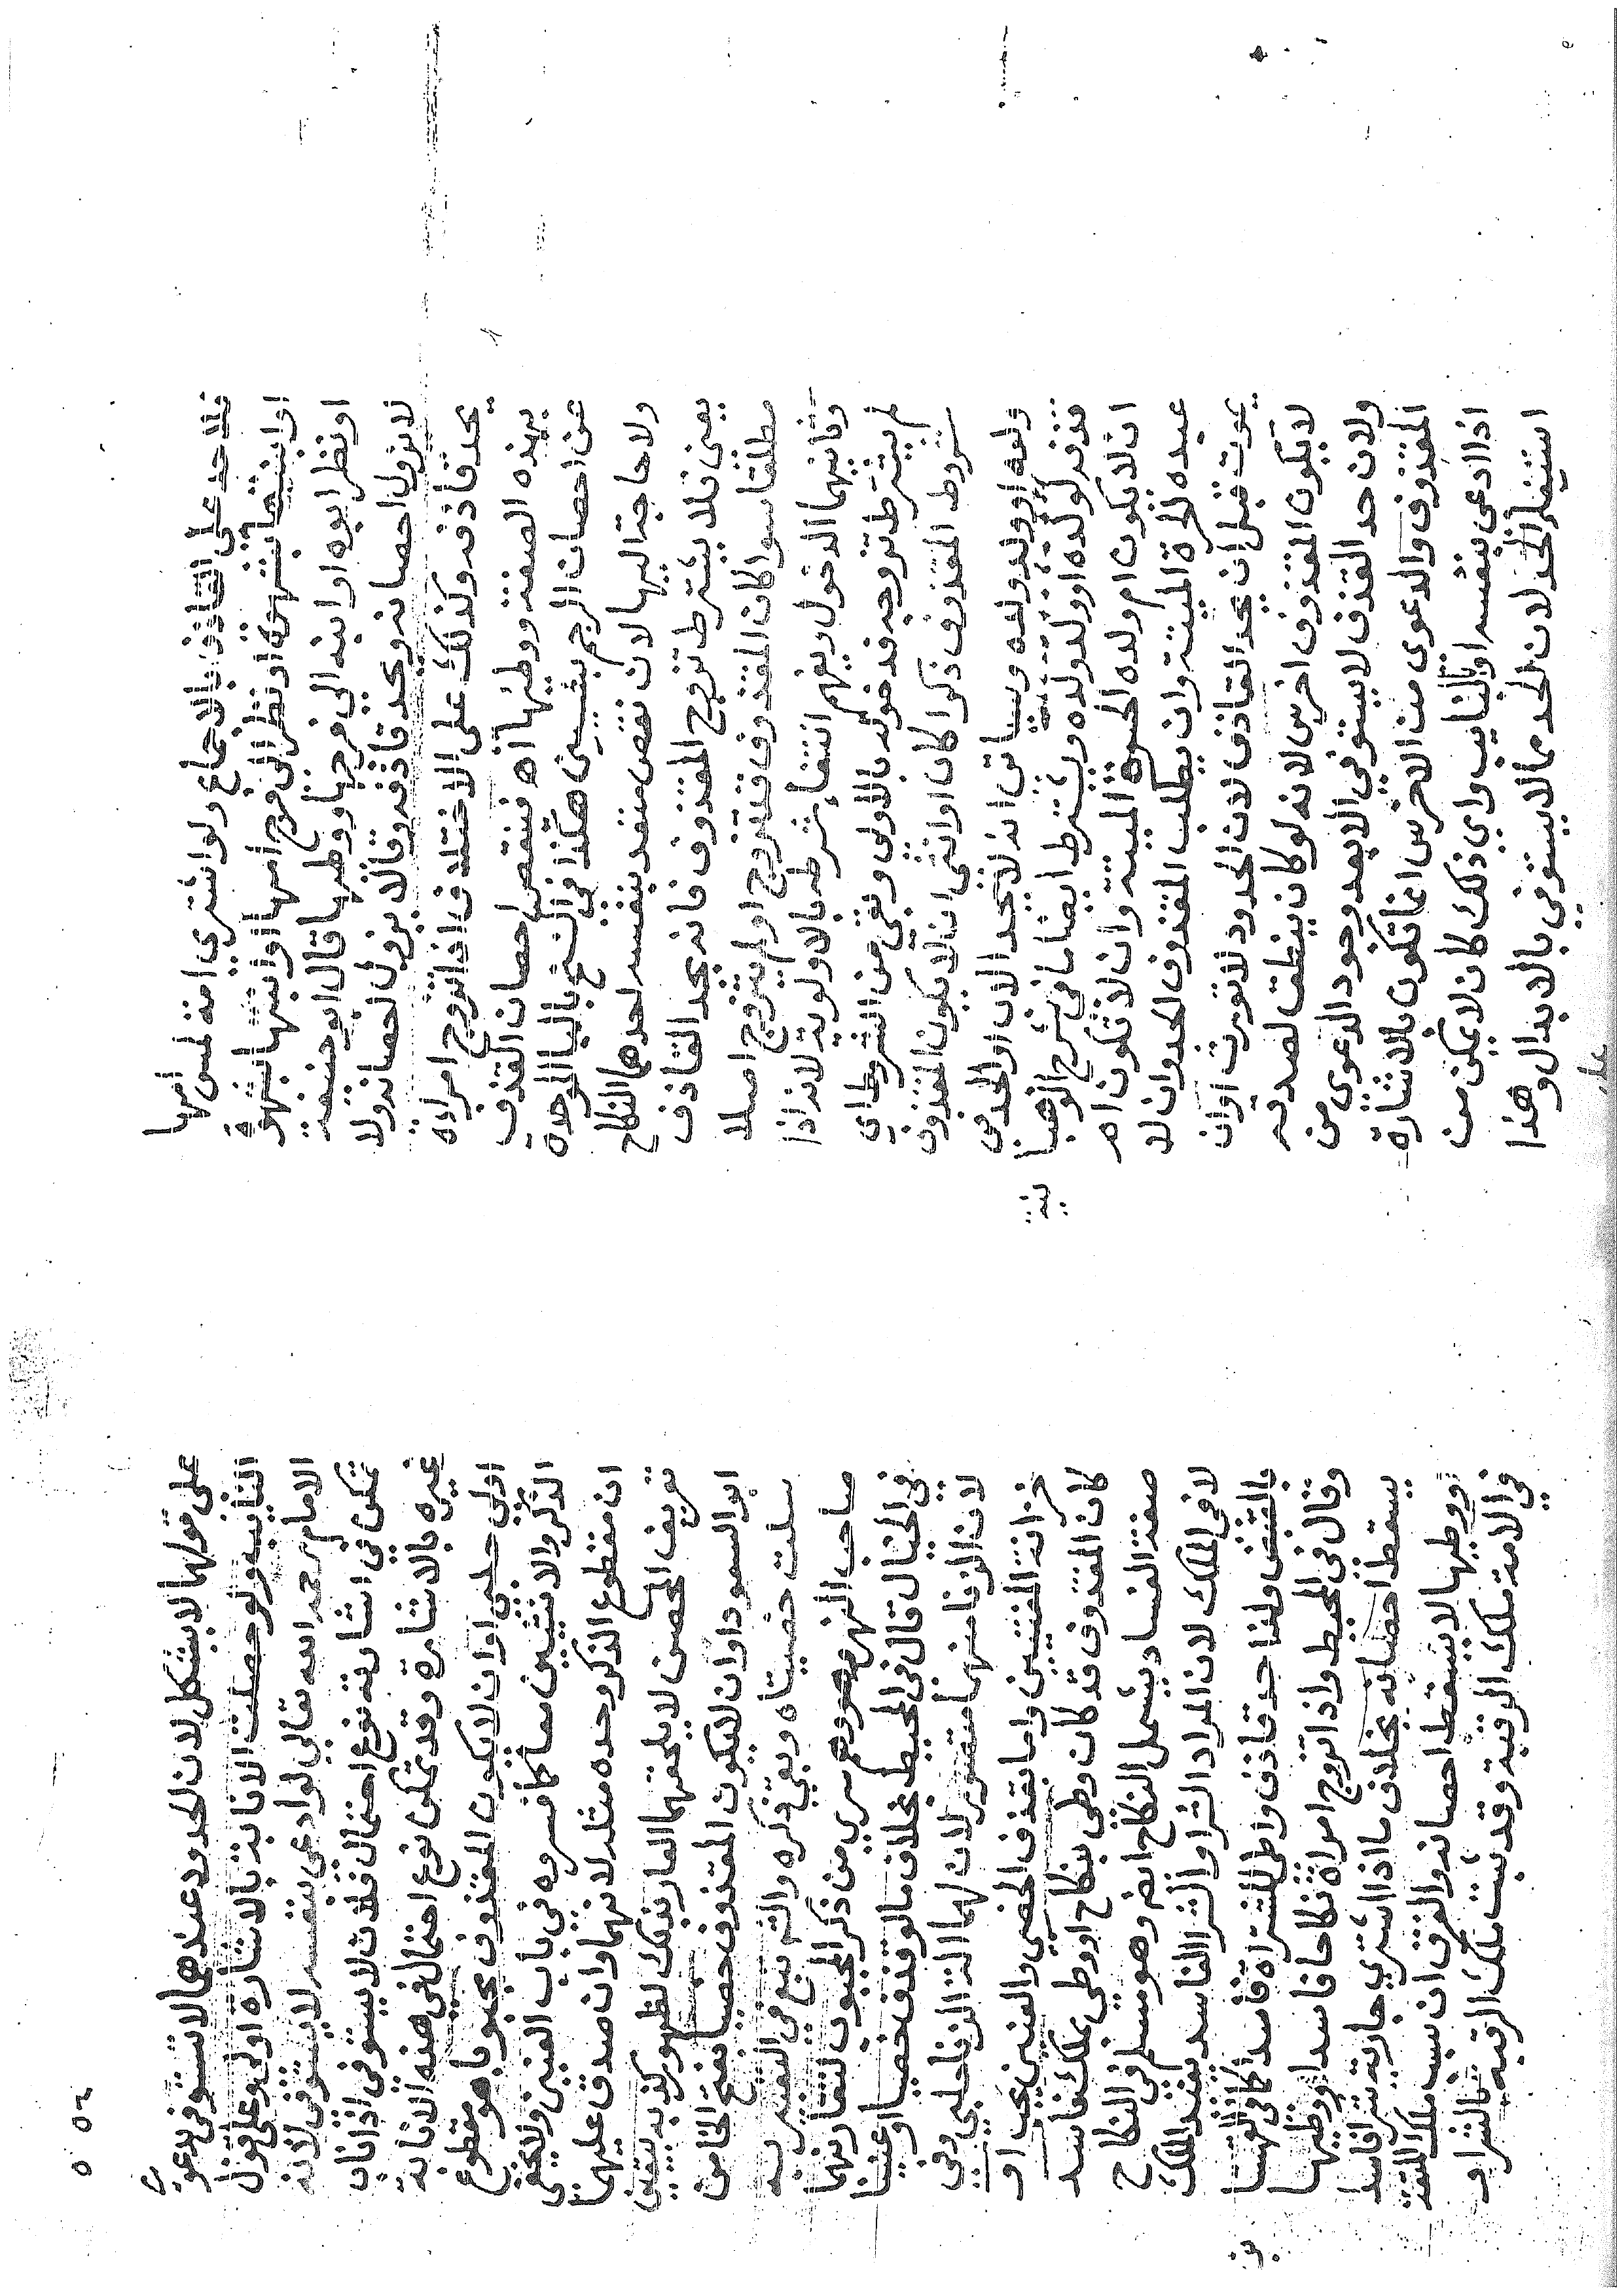 فلا حد على القاذف بالاجماع ولو اشترى امة لمس امها
او ابنتها بشهوة او نظر الى فرج امها او ابنتها بشهوة
او نظر ابوه او ابنه الي فرجها ووطيها قال ابو حنيفة
لا يزول احصانه ويحد قاذفه وقالا يزول احصانه ولا
يحد قاذفه وكذلك على الاختلاف اذا تزوج امراة
بهذه الصفة ووطيها اه فينقص احصان القذف
عن احصان الرجم بشيين هكذا في النسخ باليا الموحدة
ولا حاجة اليها لان نقص متعد بنفسه احدهما النكاح
يعني فلا يشترط تزوج المقذوف فانه يحد القاذف
مطلقا سوا كان المقذوف تزوج او لم يتزوج اصلا
وثانيهما الدخول ويفهم انتفا شرطه بالاولوية لانه اذا
لم يشترط تزوجه فدخوله بالاولى وبقي من الشروط اي
شروط المقذوف ذكرا كان او انثى ان لا يكون المقذوف
ولده او ولد ولده وسياتي انه لا يحد الاب او الجد في
قذفه لولده او ولد ولده ويشترط ايضا ما في شرح الوهبا
نية
ان لا يكون ام ولده الحرة الميتة وان لا تكون ام
عبده الحرة الميتة وان يطلب المقذوف الحد وان لا
يموت قبل ان يحد القاذف لان الحدود لا تورث وان
لا يكون المقذوف اخرس لانه لو كان ينطق لصدقه
ولان حد القذف لا يستوفي الا بعد وجود الدعوى من
المقذوف والدعوى من الاخرس انما تكون بالاشارة
اذا ادعى بنفسه او بالنايب واي ذلك كان لا يمكن من
استيفا الحد لان الحد مما لا يستوفي بالابدال وهذا
على
على قولهما لا يشكل لان الحدود عندهما لا تستوفى بدعوى
النايب ولو حصلت الانابة بالاشارة اولى وعلى قول
الامام رحمه الله تعالي لو ادعى بنفسه لا يستوفى لانه
تمكن في اشارته نوع احتمال فلان لا يستوفى اذا اناب
غيره بالاشارة وقد تمكن نوع احتمال في هذه الانابة
اولي حلبي وان لا يكون المقذوف مجبوبا هو مقطوع
الذكر والانثيين معا كما فسروه في باب العنين ولا يخفى
ان مقطوع الذكر وحده مثله لانهما وان صدق عليهما
تعريف المحصن لا يلحقهما العار بذلك لظهور كذبه بيقين
ابو السعود وان لا يكون المقذوف خصيا بفتح الخا من
سلت خصيتاه وبقي ذكره والشرح تبع في التعبير به
صاحب النهر وهو وهم سري من ذكر المجبوب لتقارنهما
في الخيال قال في المحيط بخلاف ما لو قذف خصيا او عنينا
لان الزنا منهما متصور لان لهما الة الزنا حلبي وفي
خزانة المفتيين واما بقذف الخصي والعنين يجب او
كان المقذوف قد كان وطى بنكاح او وطي بملك فاسد
صفة الفساد يشمل النكاح ايضا وهو مسلم في النكاح
لا في الملك لان المراد الشرا والشرا الفاسد يفيد الملك
بالقبض ولذا حد قاذف واطى المشتراة فاسدا كما في القهستا
ني
وقال في المحيط واذا تزوج امراة نكاحا فاسدا ووطيها
يسقط احصانه بخلاف ما اذا اشترى جارية شرا فاسدا
ووطيها لا يسقط احصانه والفرق ان سبب ملك المتعة
في الامة ملك الرقبة وقد ثبت ملك الرقبة بالشرا و